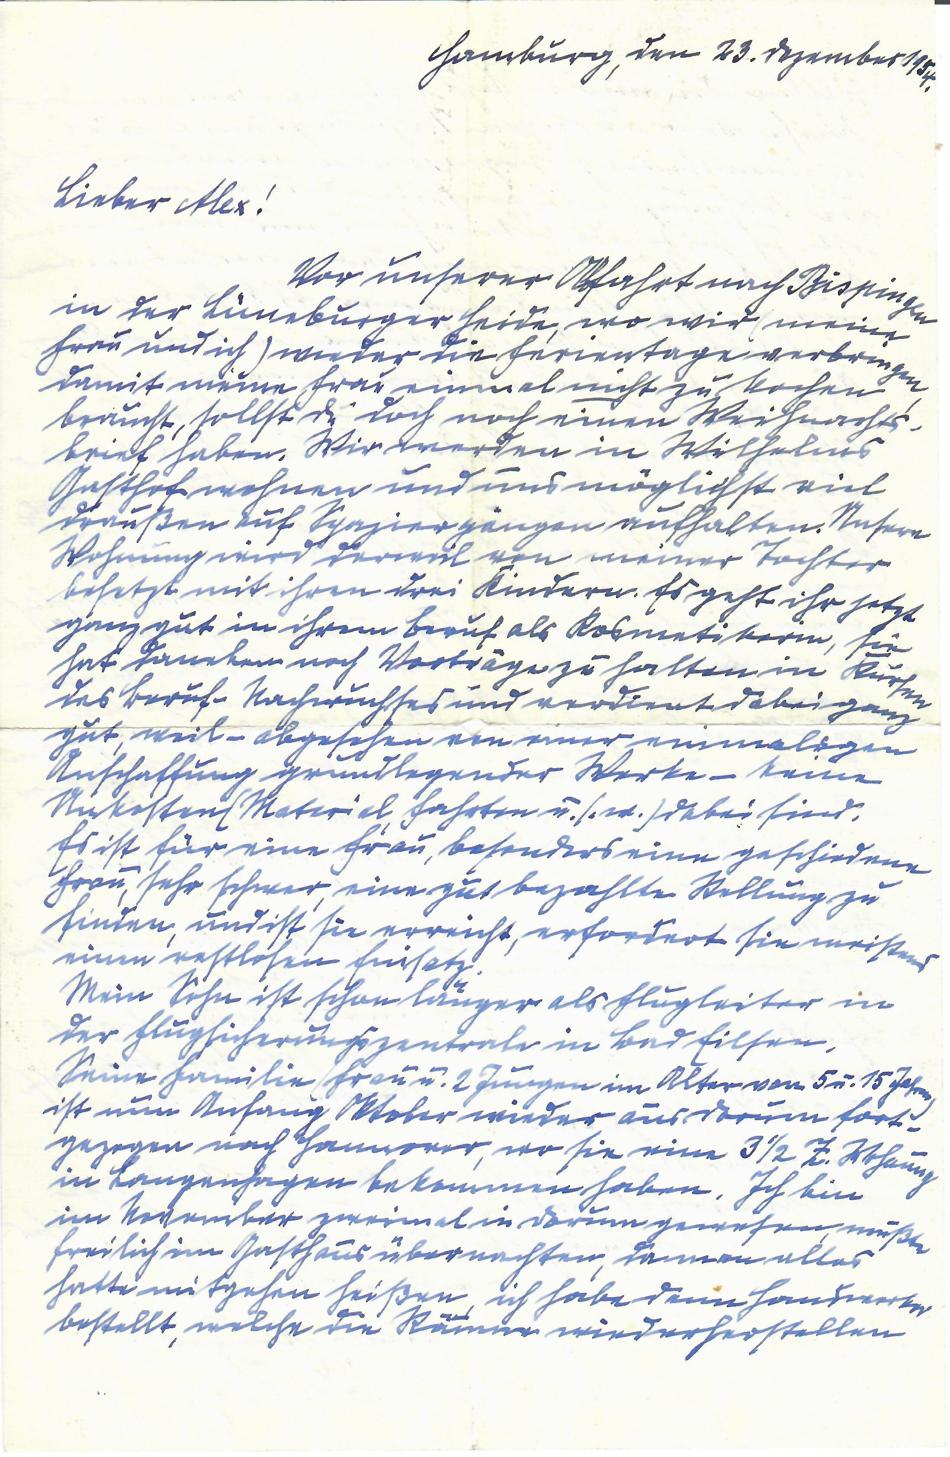 Hamburg, den 23. Dezember 1954.
Lieber Alex!
Vor unserer Abfahrt nach Bispingen
in der Lüneburger Heide, wo wir (meine
Frau und ich) wieder die Ferientage verbringen,
damit meine Frau einmal nicht zu kochen
braucht, sollst du doch noch einen Weihnachts-
brief haben. Wir werden in Wilhelms
Gasthof wohnen und uns möglichst viel
draußen auf Spaziergängen aufhalten. Unsere
Wohnung wird derweil von meiner Tochter
besetzt mit ihren drei Kindern. Es geht ihr jetzt
ganz gut in ihrem Beruf als Kosmetikerin, sie
hat daneben noch Vorträge zu halten in Kursen
des Beruf-Nachwuchses und verdient dabei ganz
gut, weil - abgesehen von einer einmaligen
Anschaffung grundlegender Werke - keine
Unkosten (Material, Fahrten u.s.w.) dabei sind.
Es ist für eine Frau, besonders eine geschiedene
Frau, sehr schwer, eine gut bezahlte Stellung zu
finden, und ist sie erreicht, erfordert sie meistens
einen restlosen Einsatz.
Mein Sohn ist schon länger als Flugleiter in
der Flugsicherungszentrale in Bad Eilsen.
Seine Familie (Frau u. 2 Jungen im Alter von 5 u. 15 Jahren)
ist nun Anfang Oktober wieder aus Dorum fort-
gezogen nach Hannover, wo sie eine 3 1/2 Z. Wohnung
in Langenhagen bekommen haben. Ich bin
im November zweimal in Dorum gewesen, mußte
freilich im Gasthaus übernachten, da man alles
hatte mitgehen heißen, ich habe dann Handwerker
bestellt, welche die Räume wiederherstellen